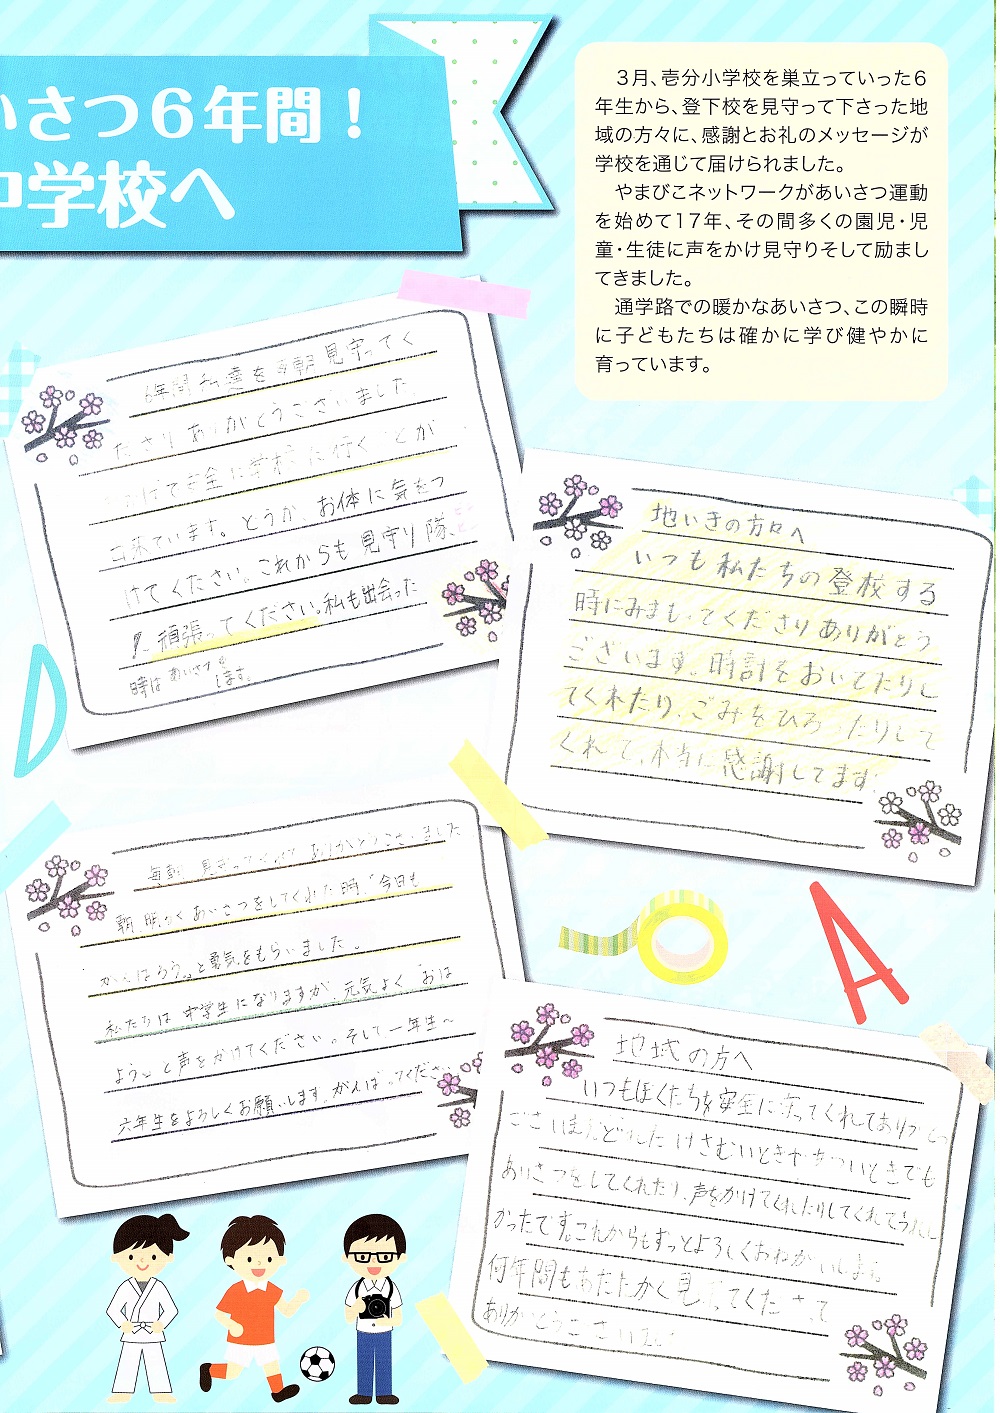 いさつ６年間！
中学校へ
３月、壱分小学校を巣立っていった６
年生から、登下校を見守って下さった地
域の方々に、感謝とお礼のメッセージが
学校を通じて届けられました。
やまびこネットワークがあいさつ運動
を始めて17年、その間多くの園児・児
童・生徒に声をかけ見守りそして励まし
てきました。
通学路での暖かなあいさつ、この瞬時
に子どもたちは確かに学び健やかに
育っています。
6年間私達を毎朝見守ってく
ださりありがとうございました。
げで安全に学校に行くことが
出来ています。どうか、お体に気をつ
けてください。これからも見守り隊、
頑張ってください。私も出会った
時はあいさつを
します。
地いきの方々へ
いつも私たちの登校する
時にみまもってくださりありがとう
ございます。時計をおいてたりし
てくれたり、ごみをひろったりして
くれて、本当に感謝してます。
毎朝、見守ってくれてありがとうございました
朝、明るくあいさつをしてくれた時、「今日も
がんばろう。」と勇気をもらいました。
私たちは中学生になりますが、元気よく「おは
よう」と声をかけてください。そして一年生〜
六年生をよろしくお願いします。がんばってください。
地域の方へ
いつもぼくたちを安全に守ってくれてありがとう
ございます
さむいときやあついときでも
あいさつをしてくれたり、声をかけてくれたりしてくれてうれし
かったです。これからもずっとよろしくおねがいします。
何年間もあたたかく見守ってくださって
ありがとうございました。
D
A